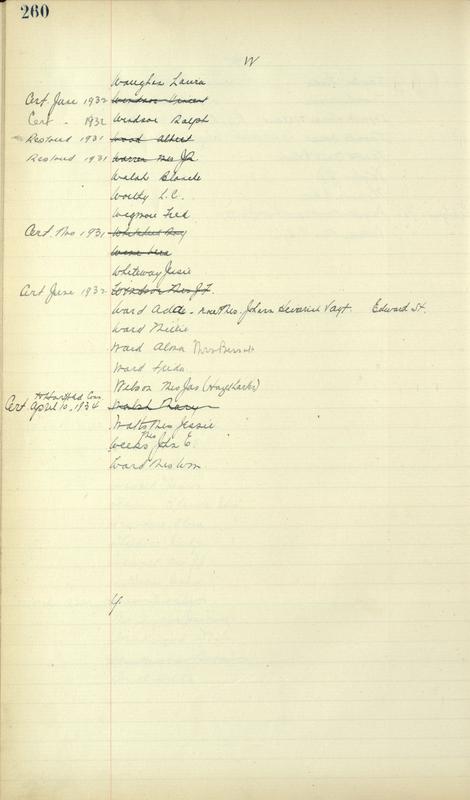 260
W
Waughes Laura
Cert June 1932 Windsor Vincent
Cert - 1932 Windsor Ralph
Restored 1931 Wood Albert
Restored 1931 Warren Mrs JR
Walsh Blanche
Worthy L.C.
Wegmore Fred
Cert. 1931
Ware Vera
Whiteway Jessie
Cert June 1932 Windsor Mrs J.F.
Ward Ada - now Mrs. John Edward St.
Ward Millie
Ward Alma Mrs
Ward Freda
Wilson Mrs Jas (Hazel
To Hartford Conn
Cert April 10, 1934 Walsh Mary
Watts Mrs Jessie
Weeks Mrs John E.
Ward Mrs Wm
Y.